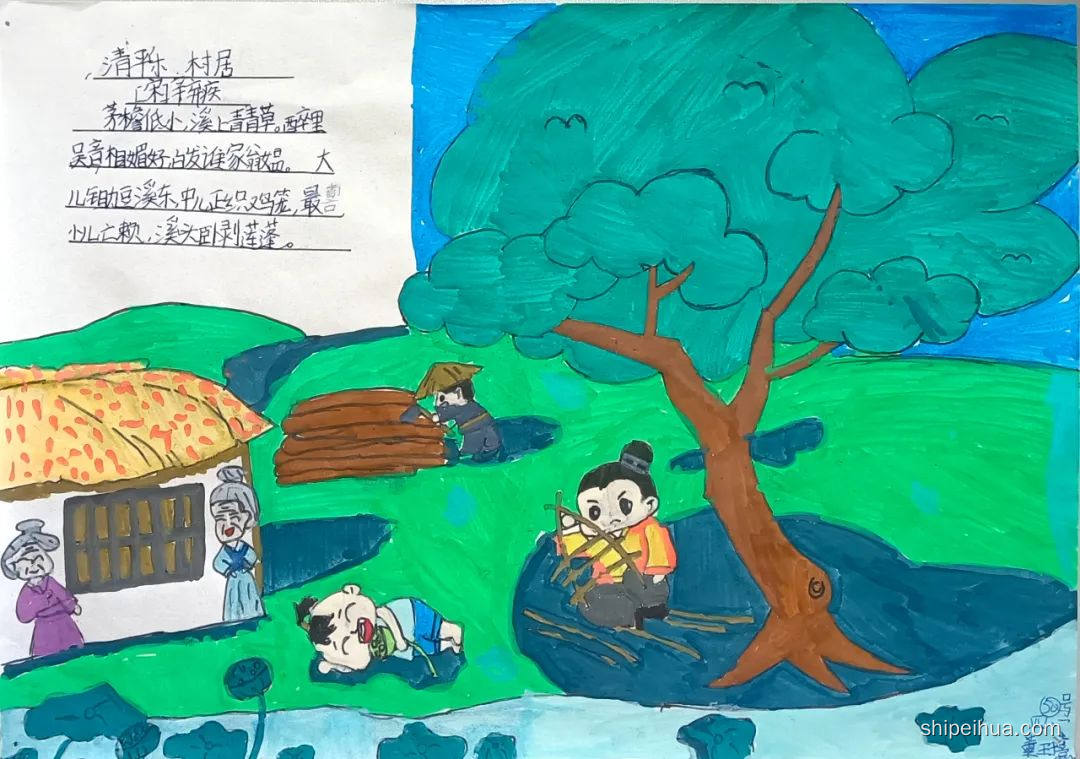 清平乐.村居
[宋]辛弃疾
茅檐低小,溪上青青草。醉里
吴音相媚好,白发谁家翁媪。 大
儿锄豆溪东,中儿正织鸡笼,最喜
小儿亡赖,溪头卧剥莲蓬。
50号
shipeihua.com